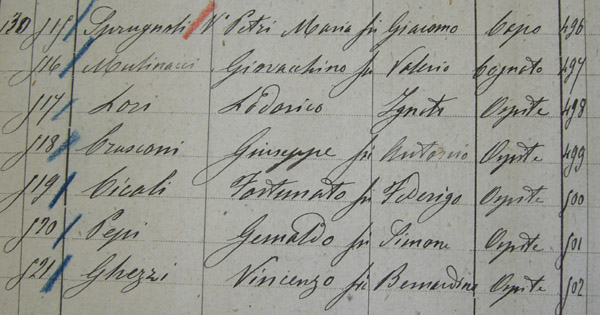 130 515 Sprugnoli V. Petri Maria fu Giacomo Capo 496
516 Mulinacci Giovacchino fu Valerio Cognato 497
517 Lori Lodovico Ignoti Ospite 498
518 Crasconi Giuseppe fu Antonio Ospite 499
519 Cicali Fortunato fu Federigo Ospite 500
520 Pepi Genialdo fu Simone Ospite 501
521 Ghezzi Vincenzo fu Bernardino Ospite 502